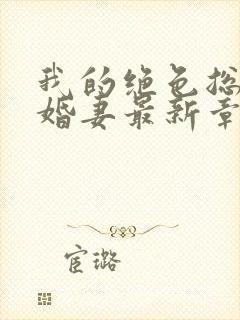 我的绝色总
婚妻最新章
宦璐